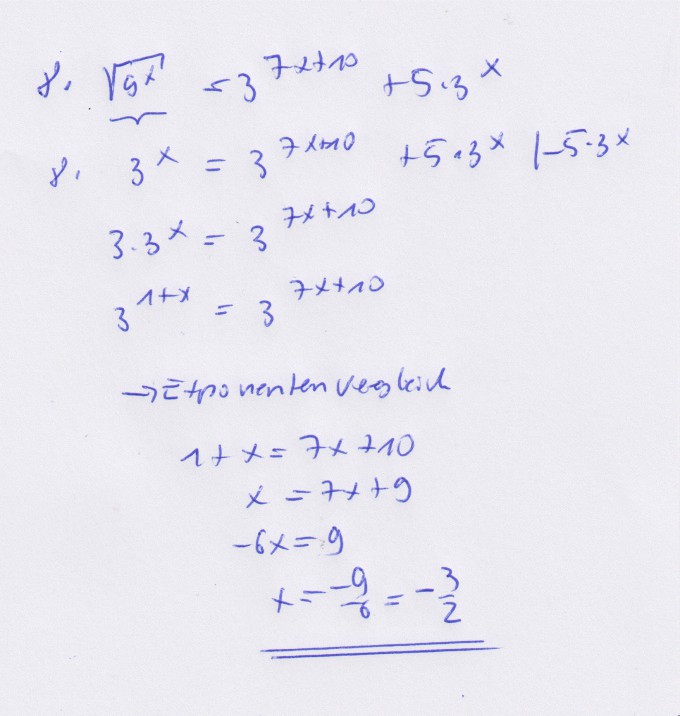 8. √9^x = 3^{7x+10} + 5·3^x
8. 3^x = 3^{7x+10} + 5·3^x |-5·3^x
3·3^x = 3^{7x+10}
3^{1+x} = 3^{7x+10}
→ Exponentenvergleich
1+x = 7x+10
x = 7x+9
-6x = 9
x = -9/-6 = -3/2